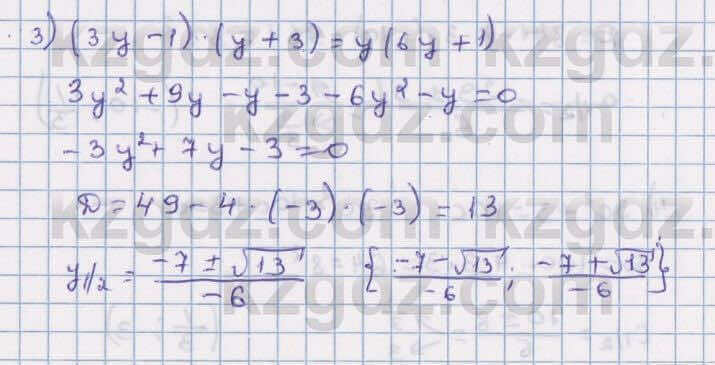 3) (3y - 1) · (y + 3) = y(6y + 1)
3y² + 9y - y - 3 - 6y² - y = 0
- 3y² + 7y - 3 = 0
D = 49 - 4 · (-3) · (-3) = 13
y₁/₂ = (-7 ± √13) / (-6) { (-7 - √13) / (-6) ; (-7 + √13) / (-6) }
kzgdz.com
kzgdz.com
kzgdz.com
kzgdz.com